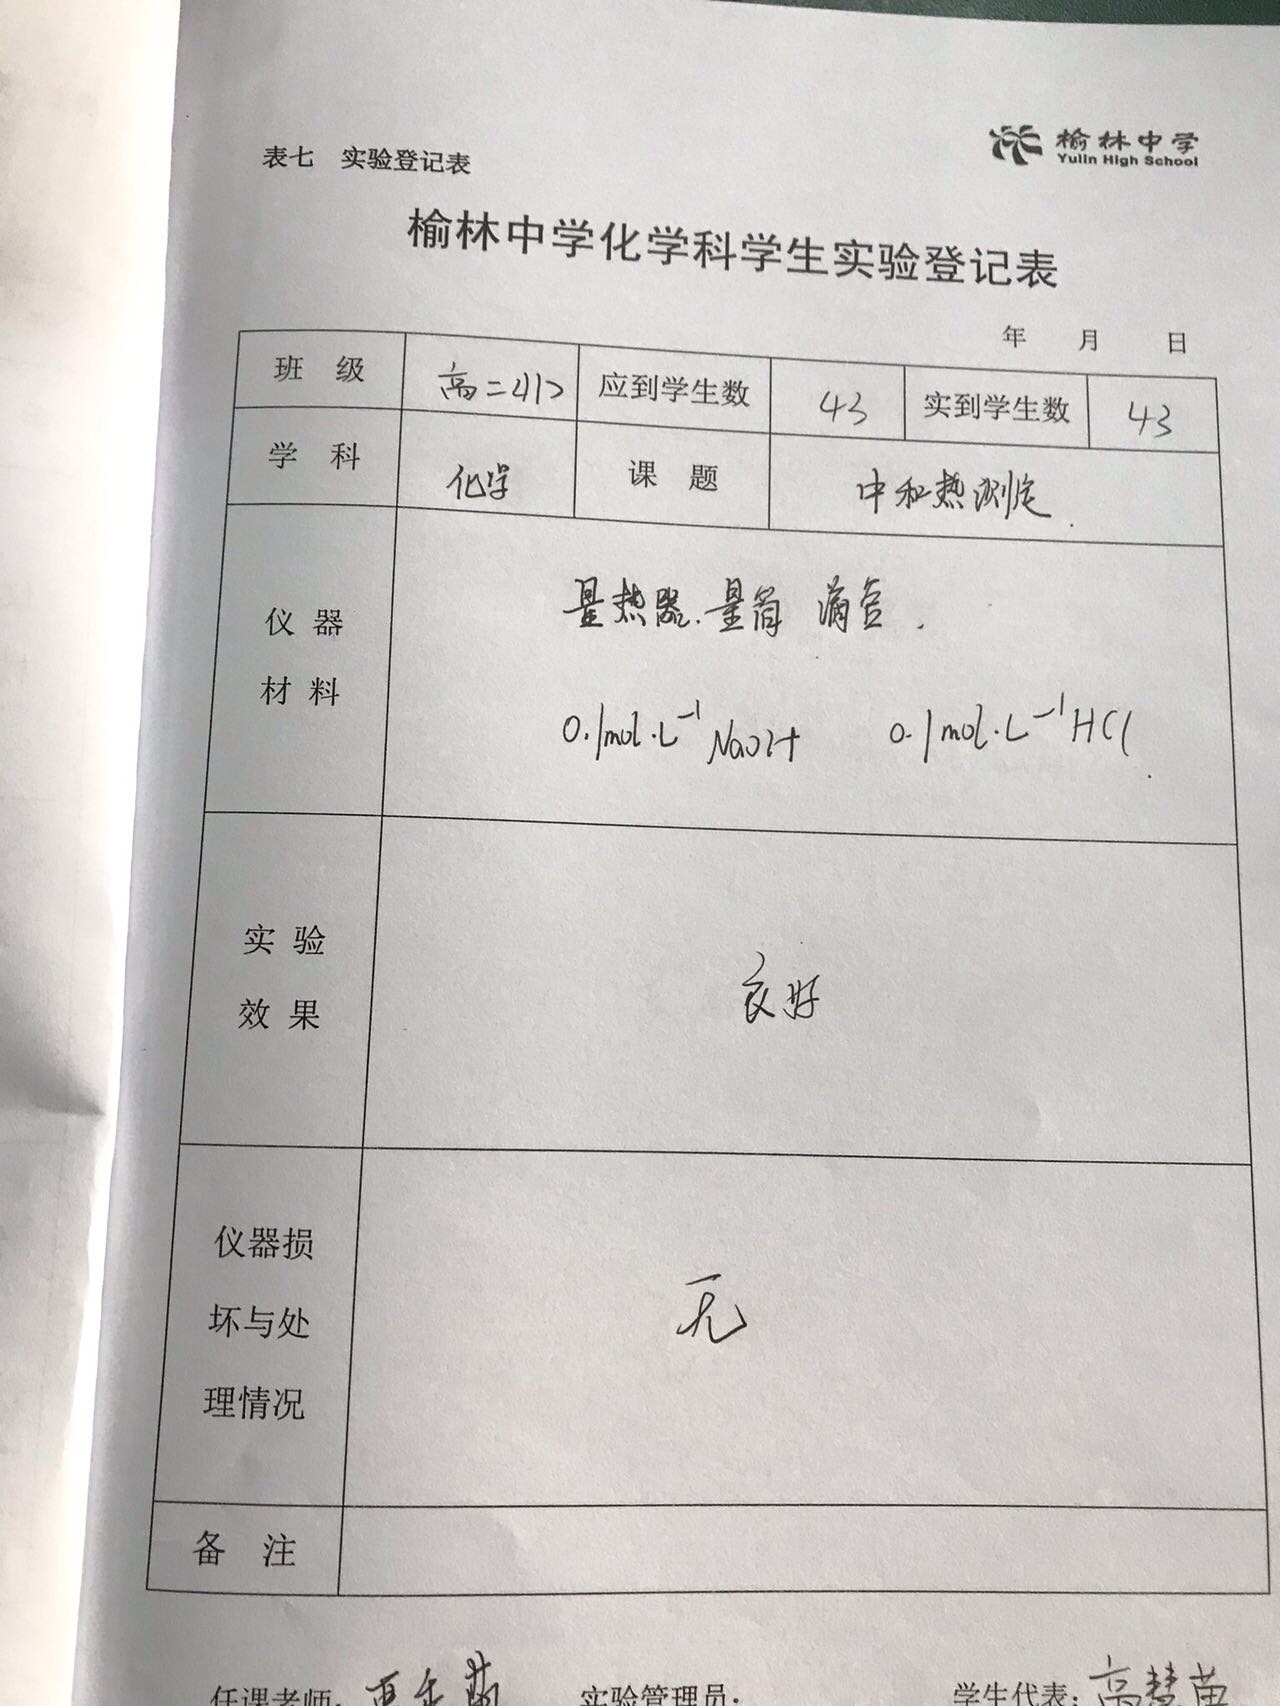 表七 实验登记表
榆林中学
Yulin High School
榆林中学化学科学生实验登记表
年 月 日
班 级 高二〈1〉 应到学生数 43 实到学生数 43
学 科 化学 课 题 中和热测定.
仪 器
材 料
量热器.量筒 滴管.
0.1mol·L⁻¹ NaOH 0.1mol·L⁻¹ HCl.
实 验
效 果
良好
仪器损
坏与处
理情况
无
备 注
任课老师: 实验管理员: 学生代表:高慧